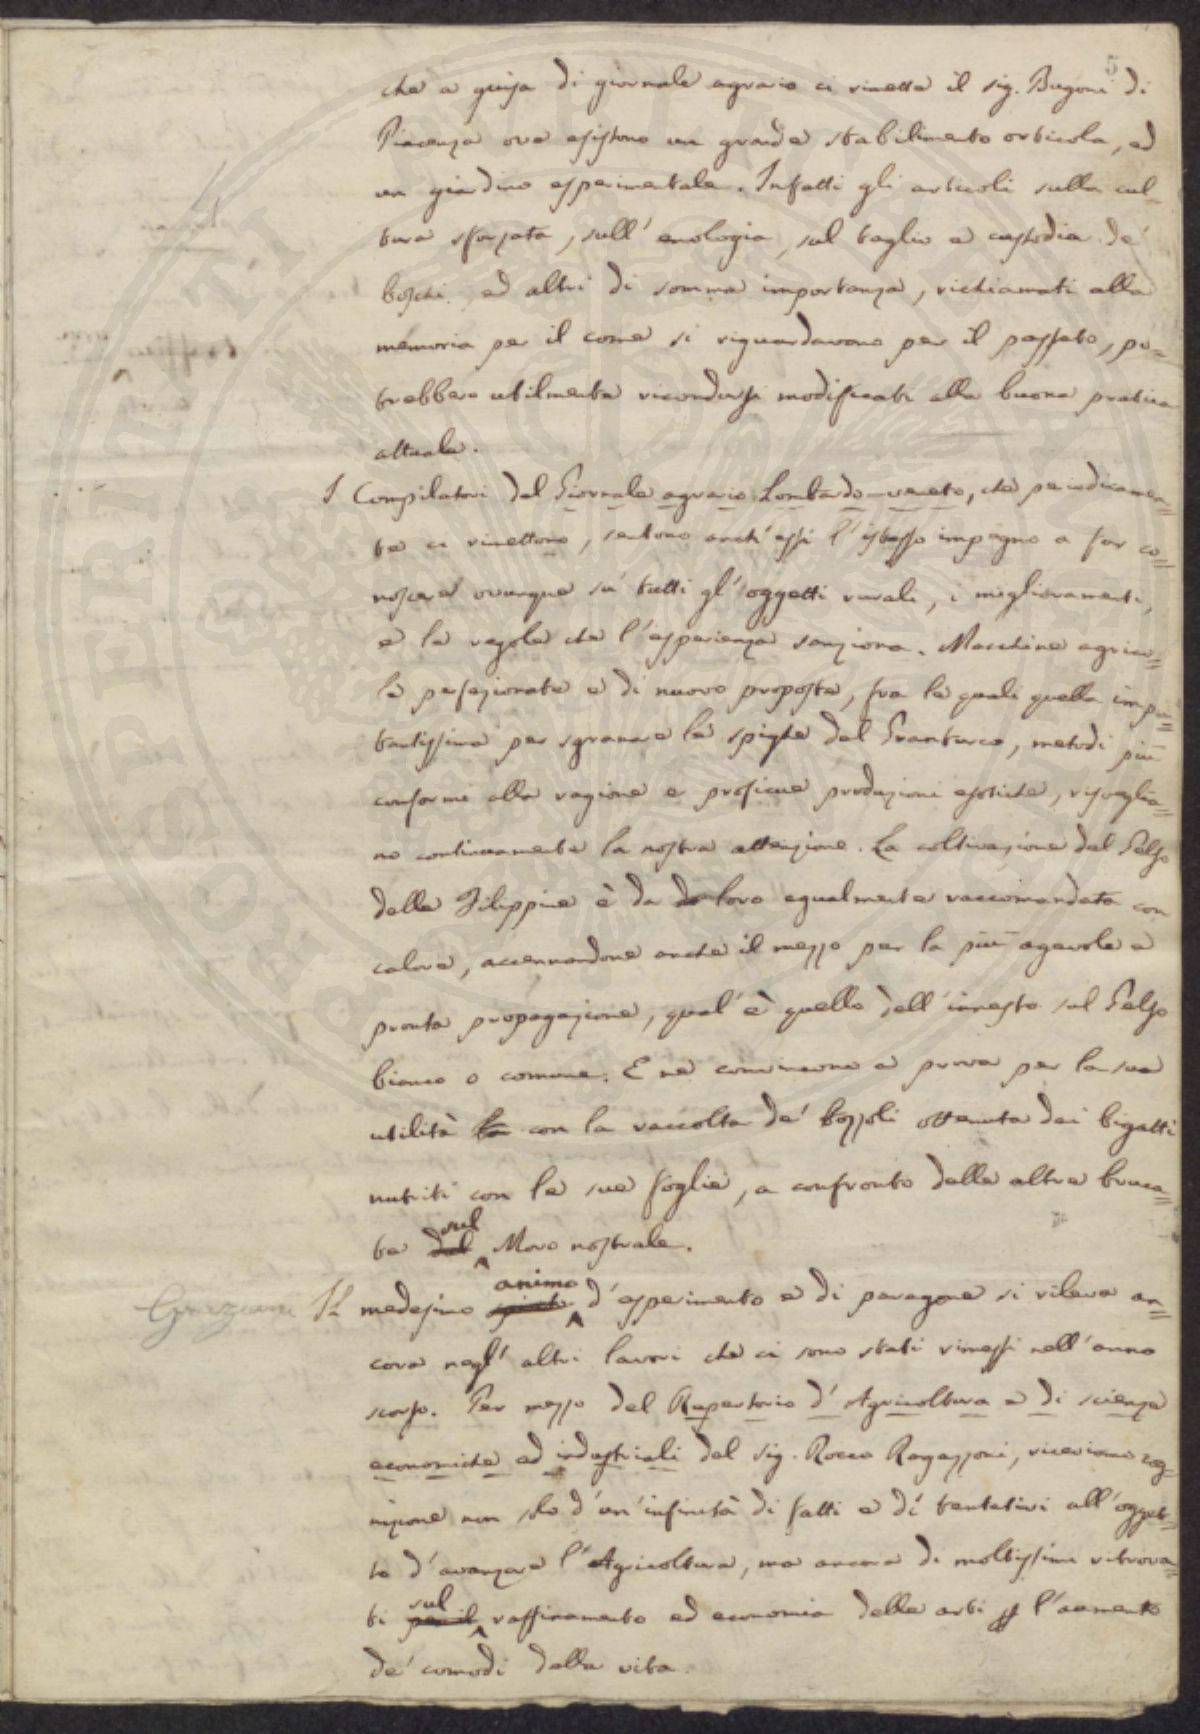 5
che a guisa di giornale agrario ci rimette il sig. Bugoni di
Piacenza ove esistono un grande stabilimento orticola, ed
un giardino esperimentale. Infatti gli articoli sulla cul-
tura sforzata, sull'enologia, sul taglio e custodia de'
boschi ed altri di somma importanza, richiamati alla
memoria per il come si riguardavano per il passato, po=
trebbero utilmente ricondursi modificati alla buona pratica
attuale.
I Compilatori del Giornale agrario Lombardo-veneto, che periodicamen=
te ci rimettono, sentono anch'essi l'istesso impegno a far co=
noscere ovunque su tutti gl'oggetti rurali, i miglioramenti,
e le regole che l'esperienza sanziona. Macchine agrico=
le perfezionate e di nuovo proposte, fra le quali quella impor=
tantissima per sgranare le spighe del Granturco, metodi più
conformi alla ragione e proficue produzioni esotiche, risveglia=
no continuamente la nostra attenzione. La coltivazione del Gelso
delle Filippine è da loro egualmente raccomandata con
calore, accennandone anche il mezzo per la più agevole e
pronta propagazione, qual'è quello dell'innesto sul Gelso
bianco o comune. E ne convincono a prova per la sua
utilità la con la raccolta de' bozzoli ottenuta dai bigatti
nutriti con le sue foglie, a confronto delle altre bruca=
te dal sul Moro nostrale.
Graziani Il medesimo animo d'esperimento e di paragone si rileva an=
cora negl'altri lavori che ci sono stati rimessi nell'anno
scorso. Per mezzo del Repertorio d'Agricoltura e di scienze
economiche ed industriali del sig. Rocco Ragazzoni, riceviamo cog=
nizione non solo d'un'infinità di fatti e di tentativi all'ogget=
to d'avanzare l'Agricoltura, ma ancora di moltissimi ritrova=
ti per il sul raffinamento ed economia delle arti l'aumento
de' comodi della vita.